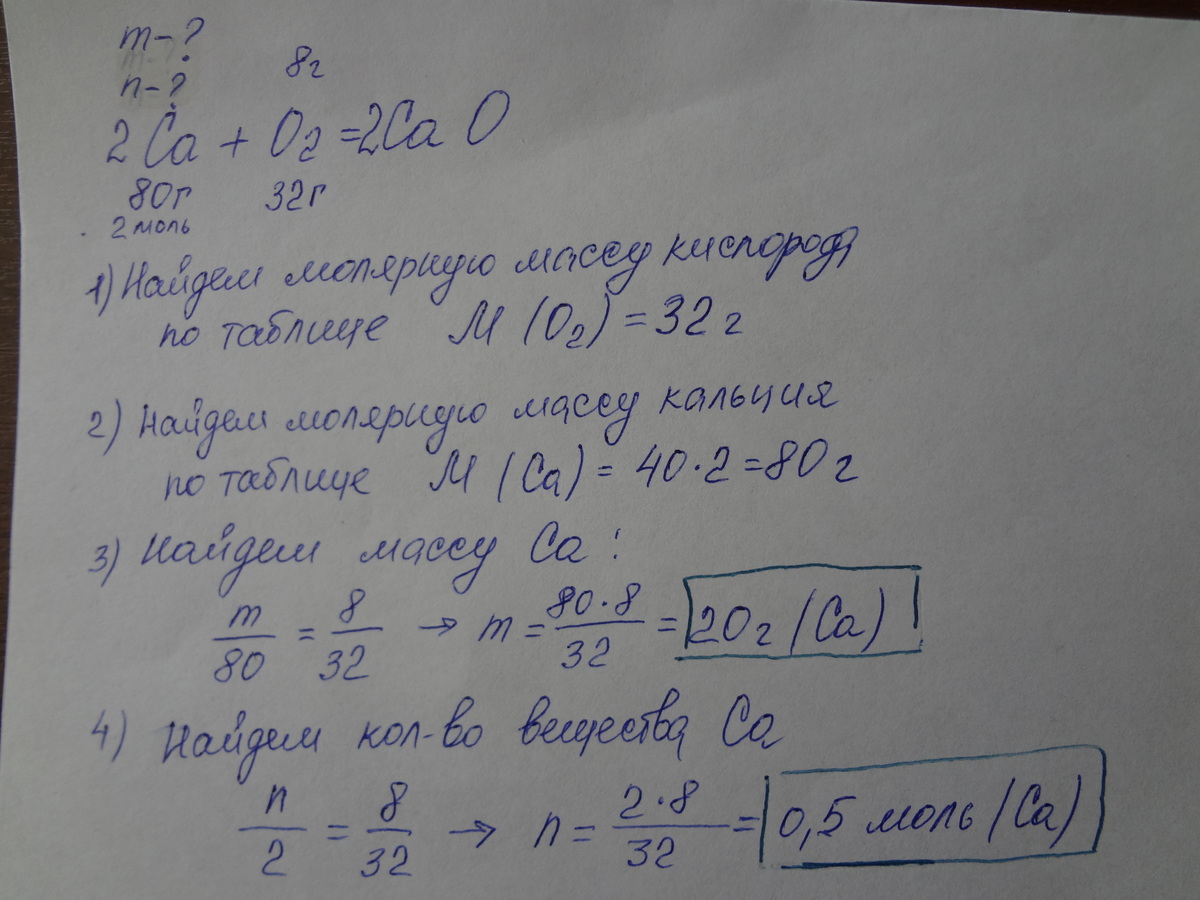 m-?
n-? 8г
2Ca + O2 = 2CaO
80г 32г
2 моль
1) Найдем молярную массу кислорода
по таблице M (O2) = 32 г
2) Найдем молярную массу кальция
по таблице M (Ca) = 40·2=80 г
3) Найдем массу Ca:
m/80 = 8/32 → m = 80·8/32 = 20 г (Ca)
4) Найдем кол-во вещества Ca
n/2 = 8/32 → n = 2·8/32 = 0,5 моль (Ca)